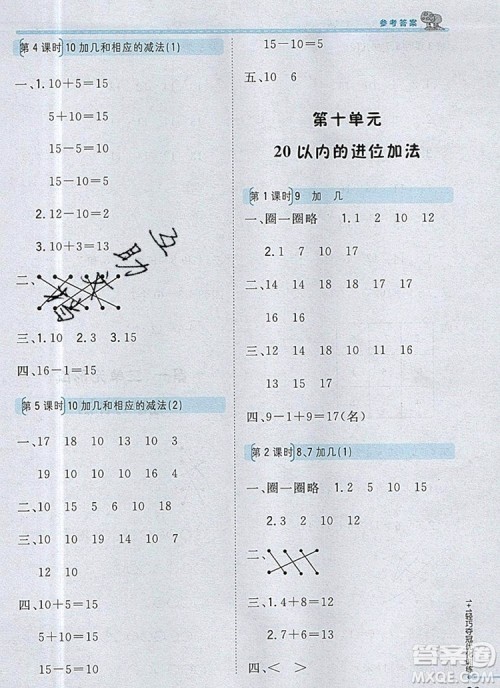 参考答案
第4课时 10加几和相应的减法(1)
一、1.10+5=15
5+10=15
15-5=10
15-10=5
2.12-10=2
3.10+3=13
二、
三、1.10 2.3 3.15
四、16-1=15
第5课时 10加几和相应的减法(2)
一、17 18 10 5 10
10 19 10 10 15
二、10 5 15 10 17 7
12 10
三、10+5=15
5+10=15
15-5=10
15-10=5
五、10 6
第十单元
20以内的进位加法
第1课时 9加几
一、圈一圈略 1.1 2 10 12
2.1 7 10 17
二、15 11 10 16
三、14 12 18 13
17 16 18 17
四、9-1+9=17(名)
第2课时 8、7加几(1)
一、圈一圈略 1.2 1 11
2.3 2 12
二、
三、1.12 2.14 3.7
四、< >
互助
精
1+1轻巧夺冠
答案圈